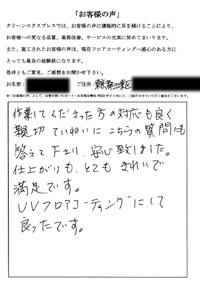 「お客様の声」
クリーンエクスプレスでは、お客様の声に積極的に耳を傾けることにより、
お客様への更なる品質、業務改善、サービスの充実に努めてまいります。
また、施工されたお客様の声は、現在フロアコーティングへ感心のある方に
とっても最良の経験談になります。
是非ともご意見、ご感想をお聞かせ下さい。
お名前
ご住所
作業にしてくださった方の対応も良く
親切ていねいにこちらの質問にも
答えて下さり、安心致しました。
仕上がりも、とてもきれいで
満足です。
UVフロアコーティングにして
良かったです。